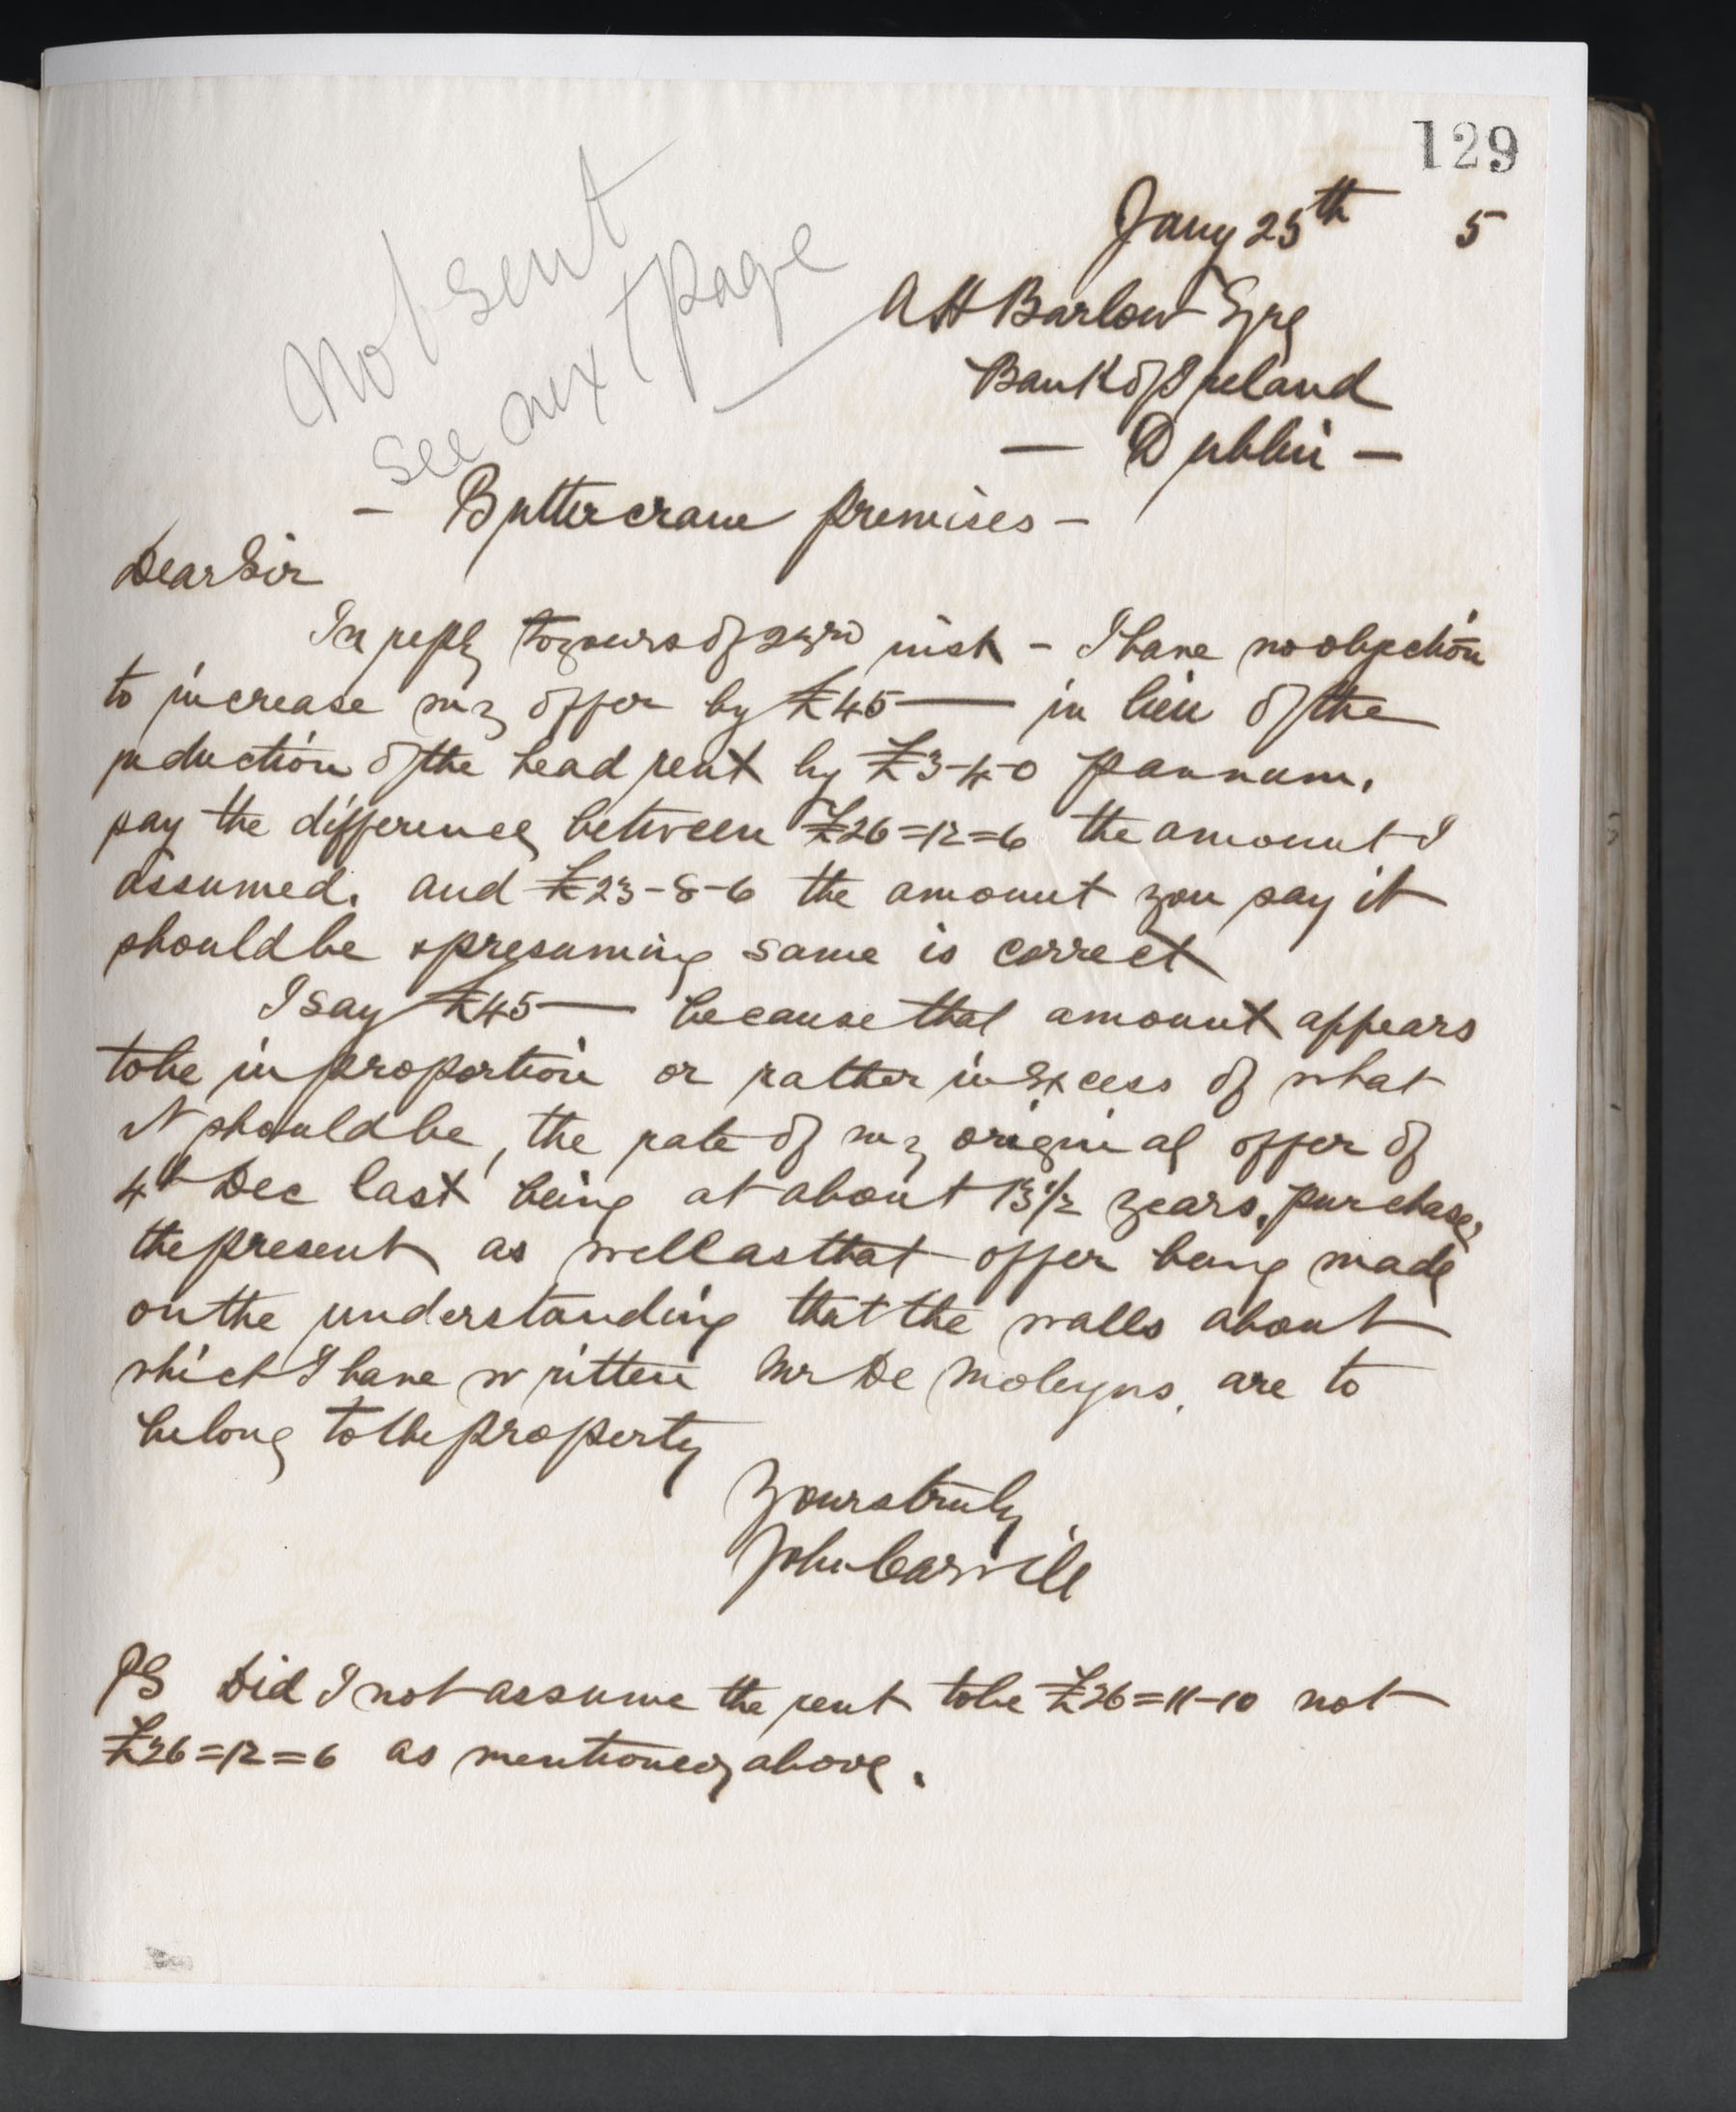 129
Jany 25th 5
A H Barlow Esqre
Bank of Ireland
— Dublin —
Not sent
see next page
- Buttercrane premises -
Dear Sir
In reply to yours of inst - I have no objection
to increase my offer by £45 — in lieu of the
reduction of the head rent by £3-4-0 p annum.
say the difference between £26=12=6 the amount I
assumed. and £23-8-6 the amount you say it
should be & presuming same is correct
I say £45 — because that amount appears
to be in proportion or rather in excess of what
it should be, the rate of my original offer of
4th Dec last being at about 13 1/2 years purchase,
the present as well as that offer being made
on the understanding that the walls about
which I have written Mr De Moleyns. are to
belong to the property
Yours truly
John Carvill
PS Did I not assume the rent to be £26=11-10 not
£26=12=6 as mentioned above.